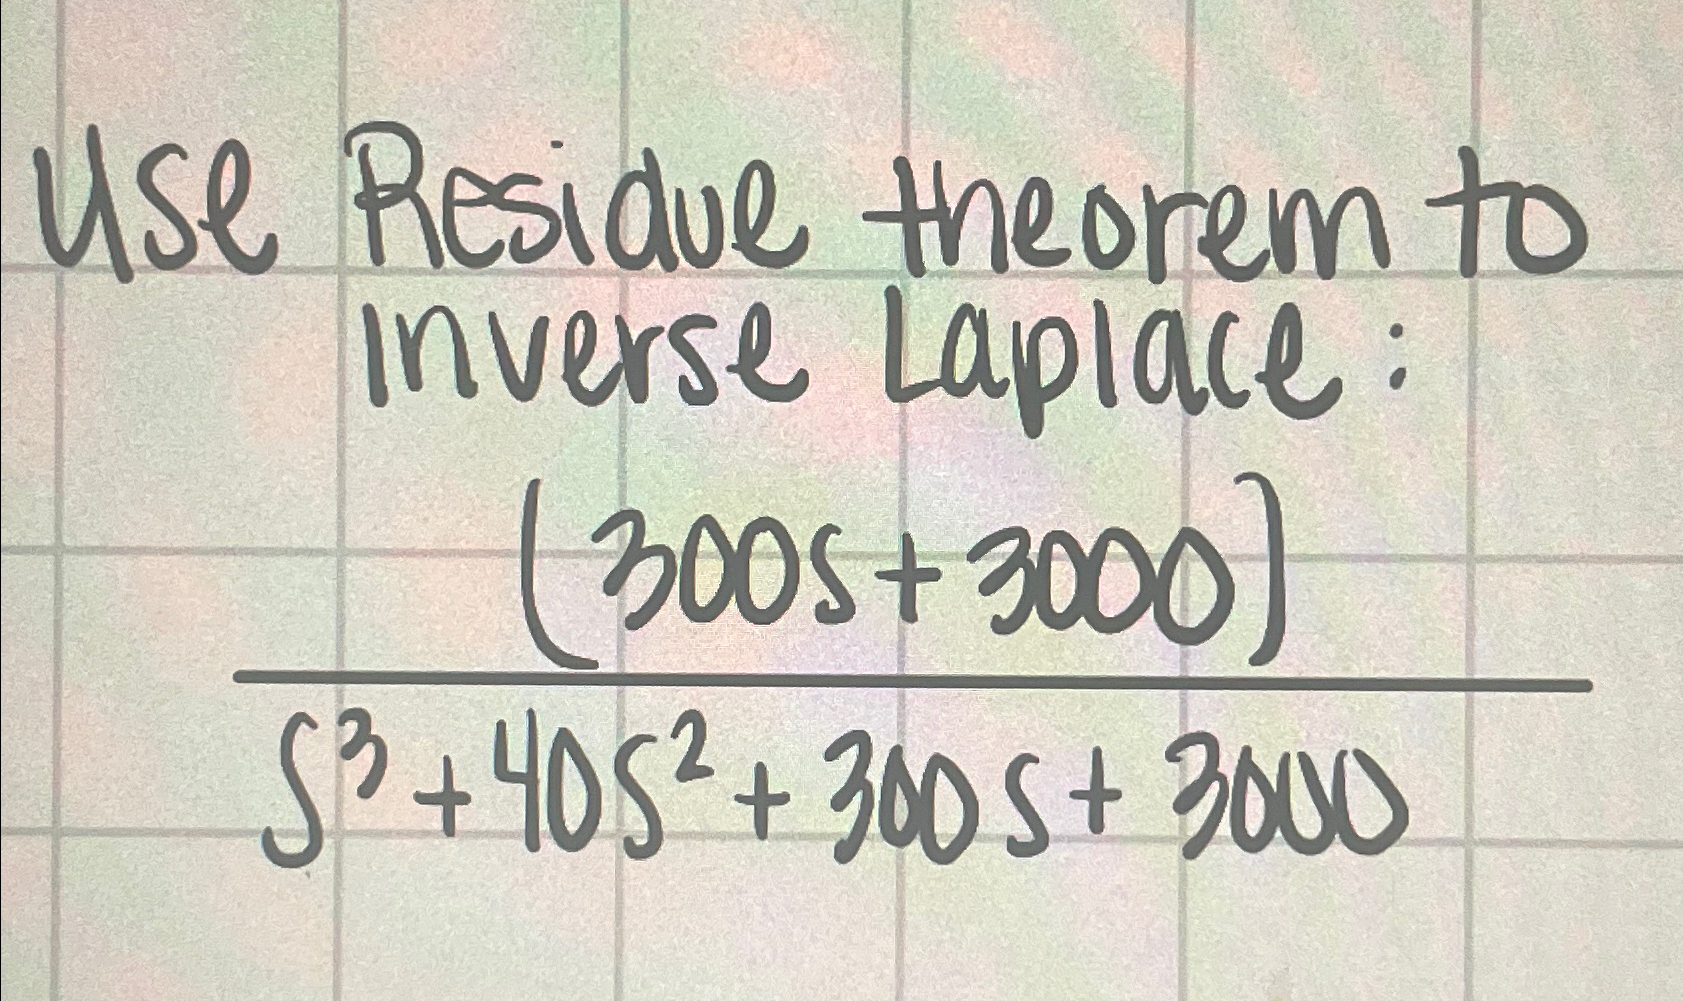 Use Residue theorem to
Inverse Laplace:
(300s+3000)
s³+40s²+300s+3000